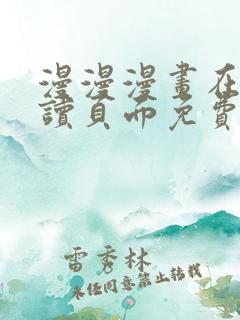 漫漫漫畫在
讀頁面免費
雷季林
未經同意禁止轉載